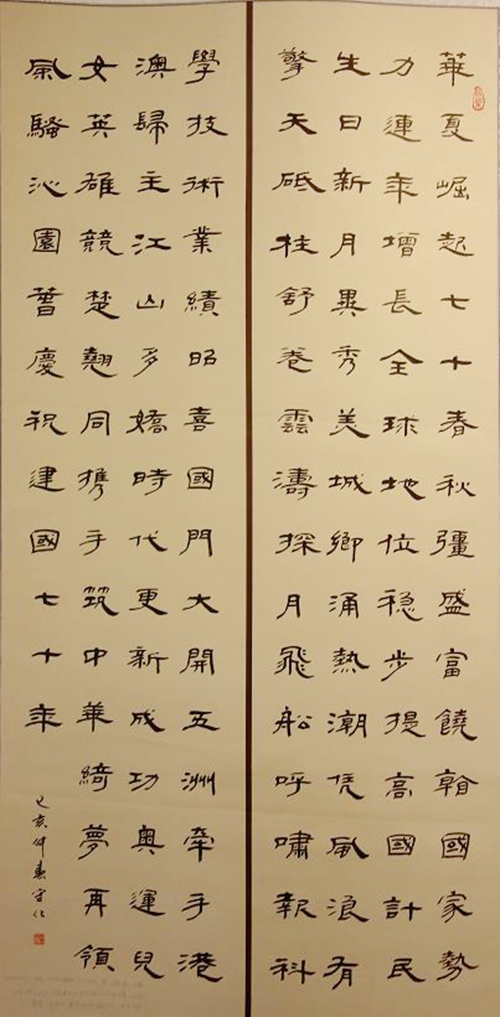 華夏崛起七十春秋彊盛富饒看國家勢
力連年增長全球地位稳步提高國計民
生日新月異秀美城鄉涌熱潮凭風浪有
擎天砥柱舒卷雲濤探月飛船呼嘯報科
學技術業績昭喜國門大開五洲牽手港
澳歸主江山多嬌時代更新成功奧運兒
女英雄競楚翹同携手筑中華綺夢再領
風騷沁園春慶祝建國七十年
己亥仲春守